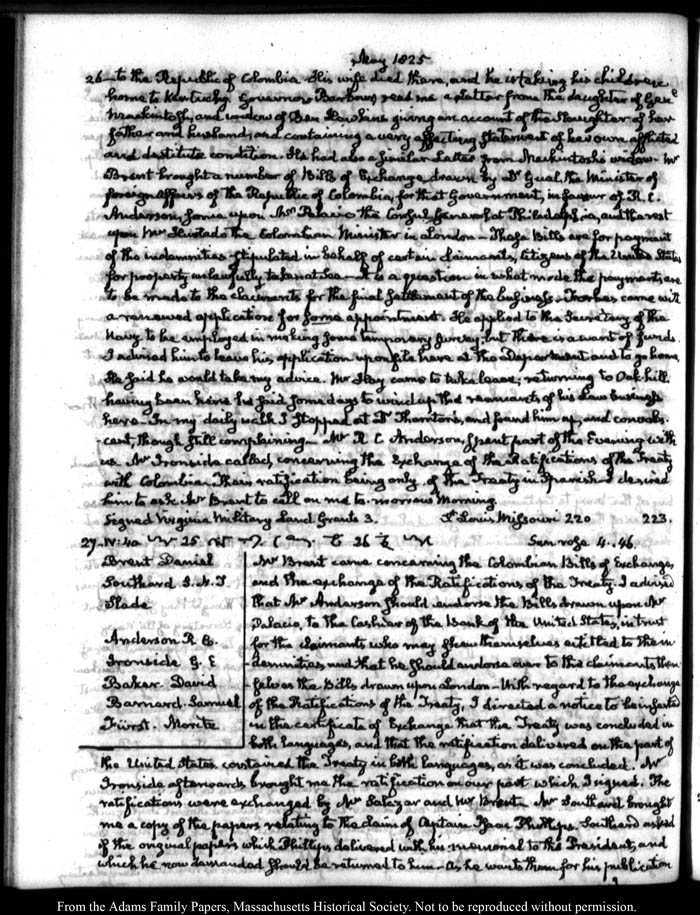 May 1825
26 to the Republic of Colombia. His wife died there, and he is taking his children
home to Kentucky. Governor Barbour read me a letter from the daughter of Gen.l
Mackintosh, and widow of giving an account of the slaughter of her
father and husband, and containing a very affecting statement of her own afflicted
and destitute condition. He had also a similar Letter from Mackintosh's widow. Mr
Brent brought a number of Bills of Exchange, drawn by Dr Gual the Minister of
foreign affairs of the Republic of Colombia, for that Government, in favour of R. C.
Anderson, some upon Mr Palacio the Consul General at Philadelphia, and the rest
upon Mr Hurtado the Colombian Minister in London — These Bills are for payment
of the indemnities stipulated in behalf of certain claimants, Citizens of the United States
for property unlawfully taken at Sea — It is a question in what mode the payments are
to be made to the claimants for the final settlement of the business. came with
a renewed application for some appointment. He applied to the Secretary of the
Navy to be employed in making some temporary survey, but there is a want of funds.
I advised him to leave his application upon file here at the Department and to go home.
He said he would take my advice. Mr Hay came to take leave; returning to Oak hill.
having been here he said some days to wind up the remnants of his Law business
here. In my daily walk I stopped at Dr Thornton's, and found him up, and convales-
cent, though still complaining. Mr R C Anderson, spent part of the Evening with
us. Mr Ironside called, concerning the Exchange of the Ratifications of the Treaty
with Colombia. Their ratification being only of the Treaty in Spanish I desired
him to ask Mr Brent to call on me to-morrow Morning.
Signed Virginia Military Land Grants 3. St Louis Missouri 220 223.
27. IV:40 Sun rose 4..46.
Brent Daniel
Southard S. N. J
Slade
Anderson R C.
Ironside G. E
Baker. David
Barnard. Samuel
Fürst. Moritz
Mr Brent came concerning the Colombian Bills of Exchange,
and the exchange of the Ratifications of the Treaty. I advised
that Mr Anderson should endorse the Bills drawn upon Mr
Palacio, to the Cashier of the Bank of the United States, in trust
for the claimants who may shew themselves entitled to the in-
demnities, and that he should endorse over to the claimants them
selves the Bills drawn upon London — With regard to the exchange
of the Ratifications of the Treaty, I directed a notice to be inserted
in the certificate of Exchange that the Treaty was concluded in
both languages, and that the ratification delivered on the part of
the United States contained the Treaty in both languages, as it was concluded. Mr
Ironside afterwards brought me the ratification on our part which I signed. The
ratifications were exchanged by Mr Salazar and Mr Brent. Mr Southard brought
me a copy of the papers relating to the claim of Captain Isaac Phillips. Southard asked
of the original papers which Phillips delivered with his memorial to the President, and
which he now demanded should be returned to him — As he wants them for his publication
From the Adams Family Papers, Massachusetts Historical Society. Not to be reproduced without permission.